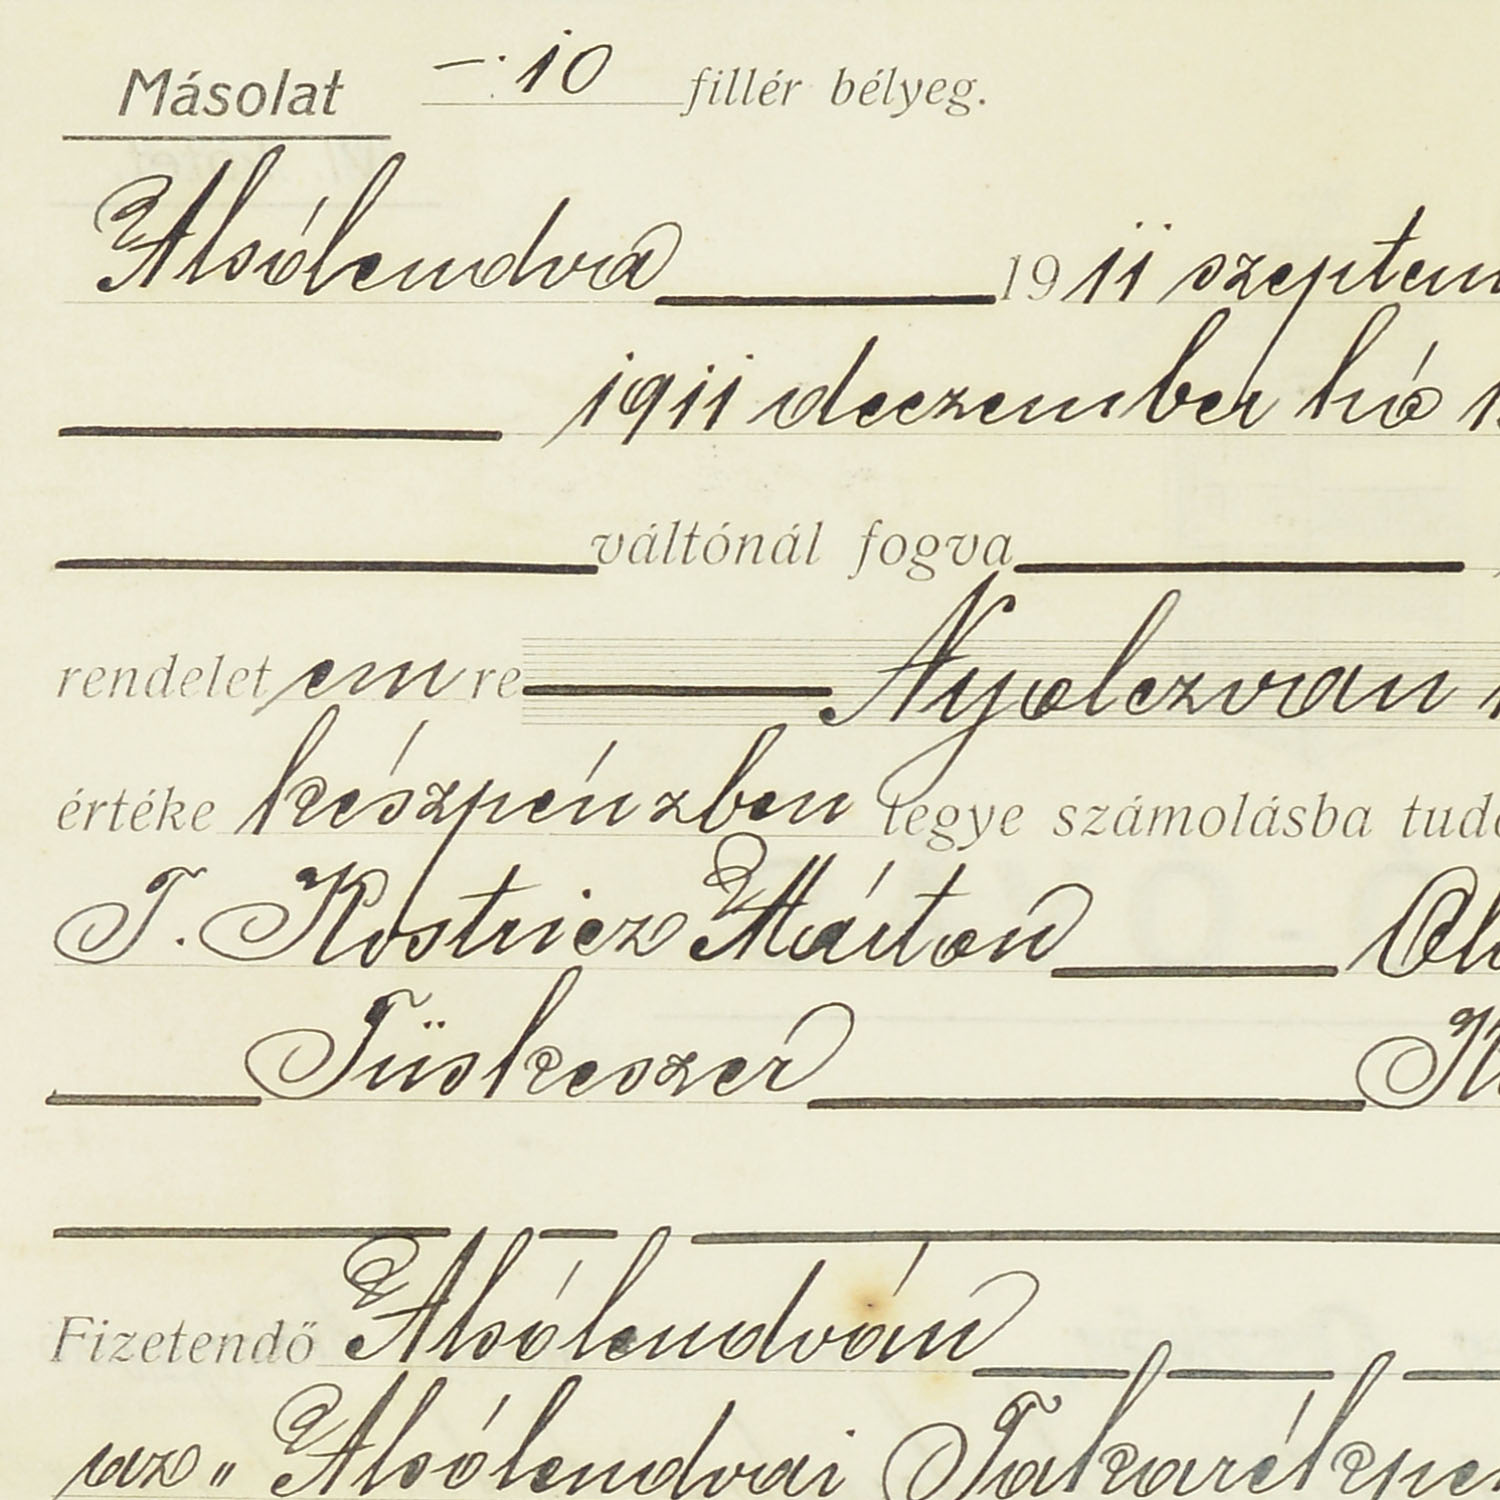 Másolat —·10 fillér bélyeg.
Alsólendva 1911 szeptem
1911 deczember hó 1
váltónál fogva
rendelet em re Nyolczvan
értéke készpénzben tegye számolásba tud
T. Kostricz Márton
Tüskeszer
Fizetendő Alsólendván
az „Alsólendvai Takarékpén